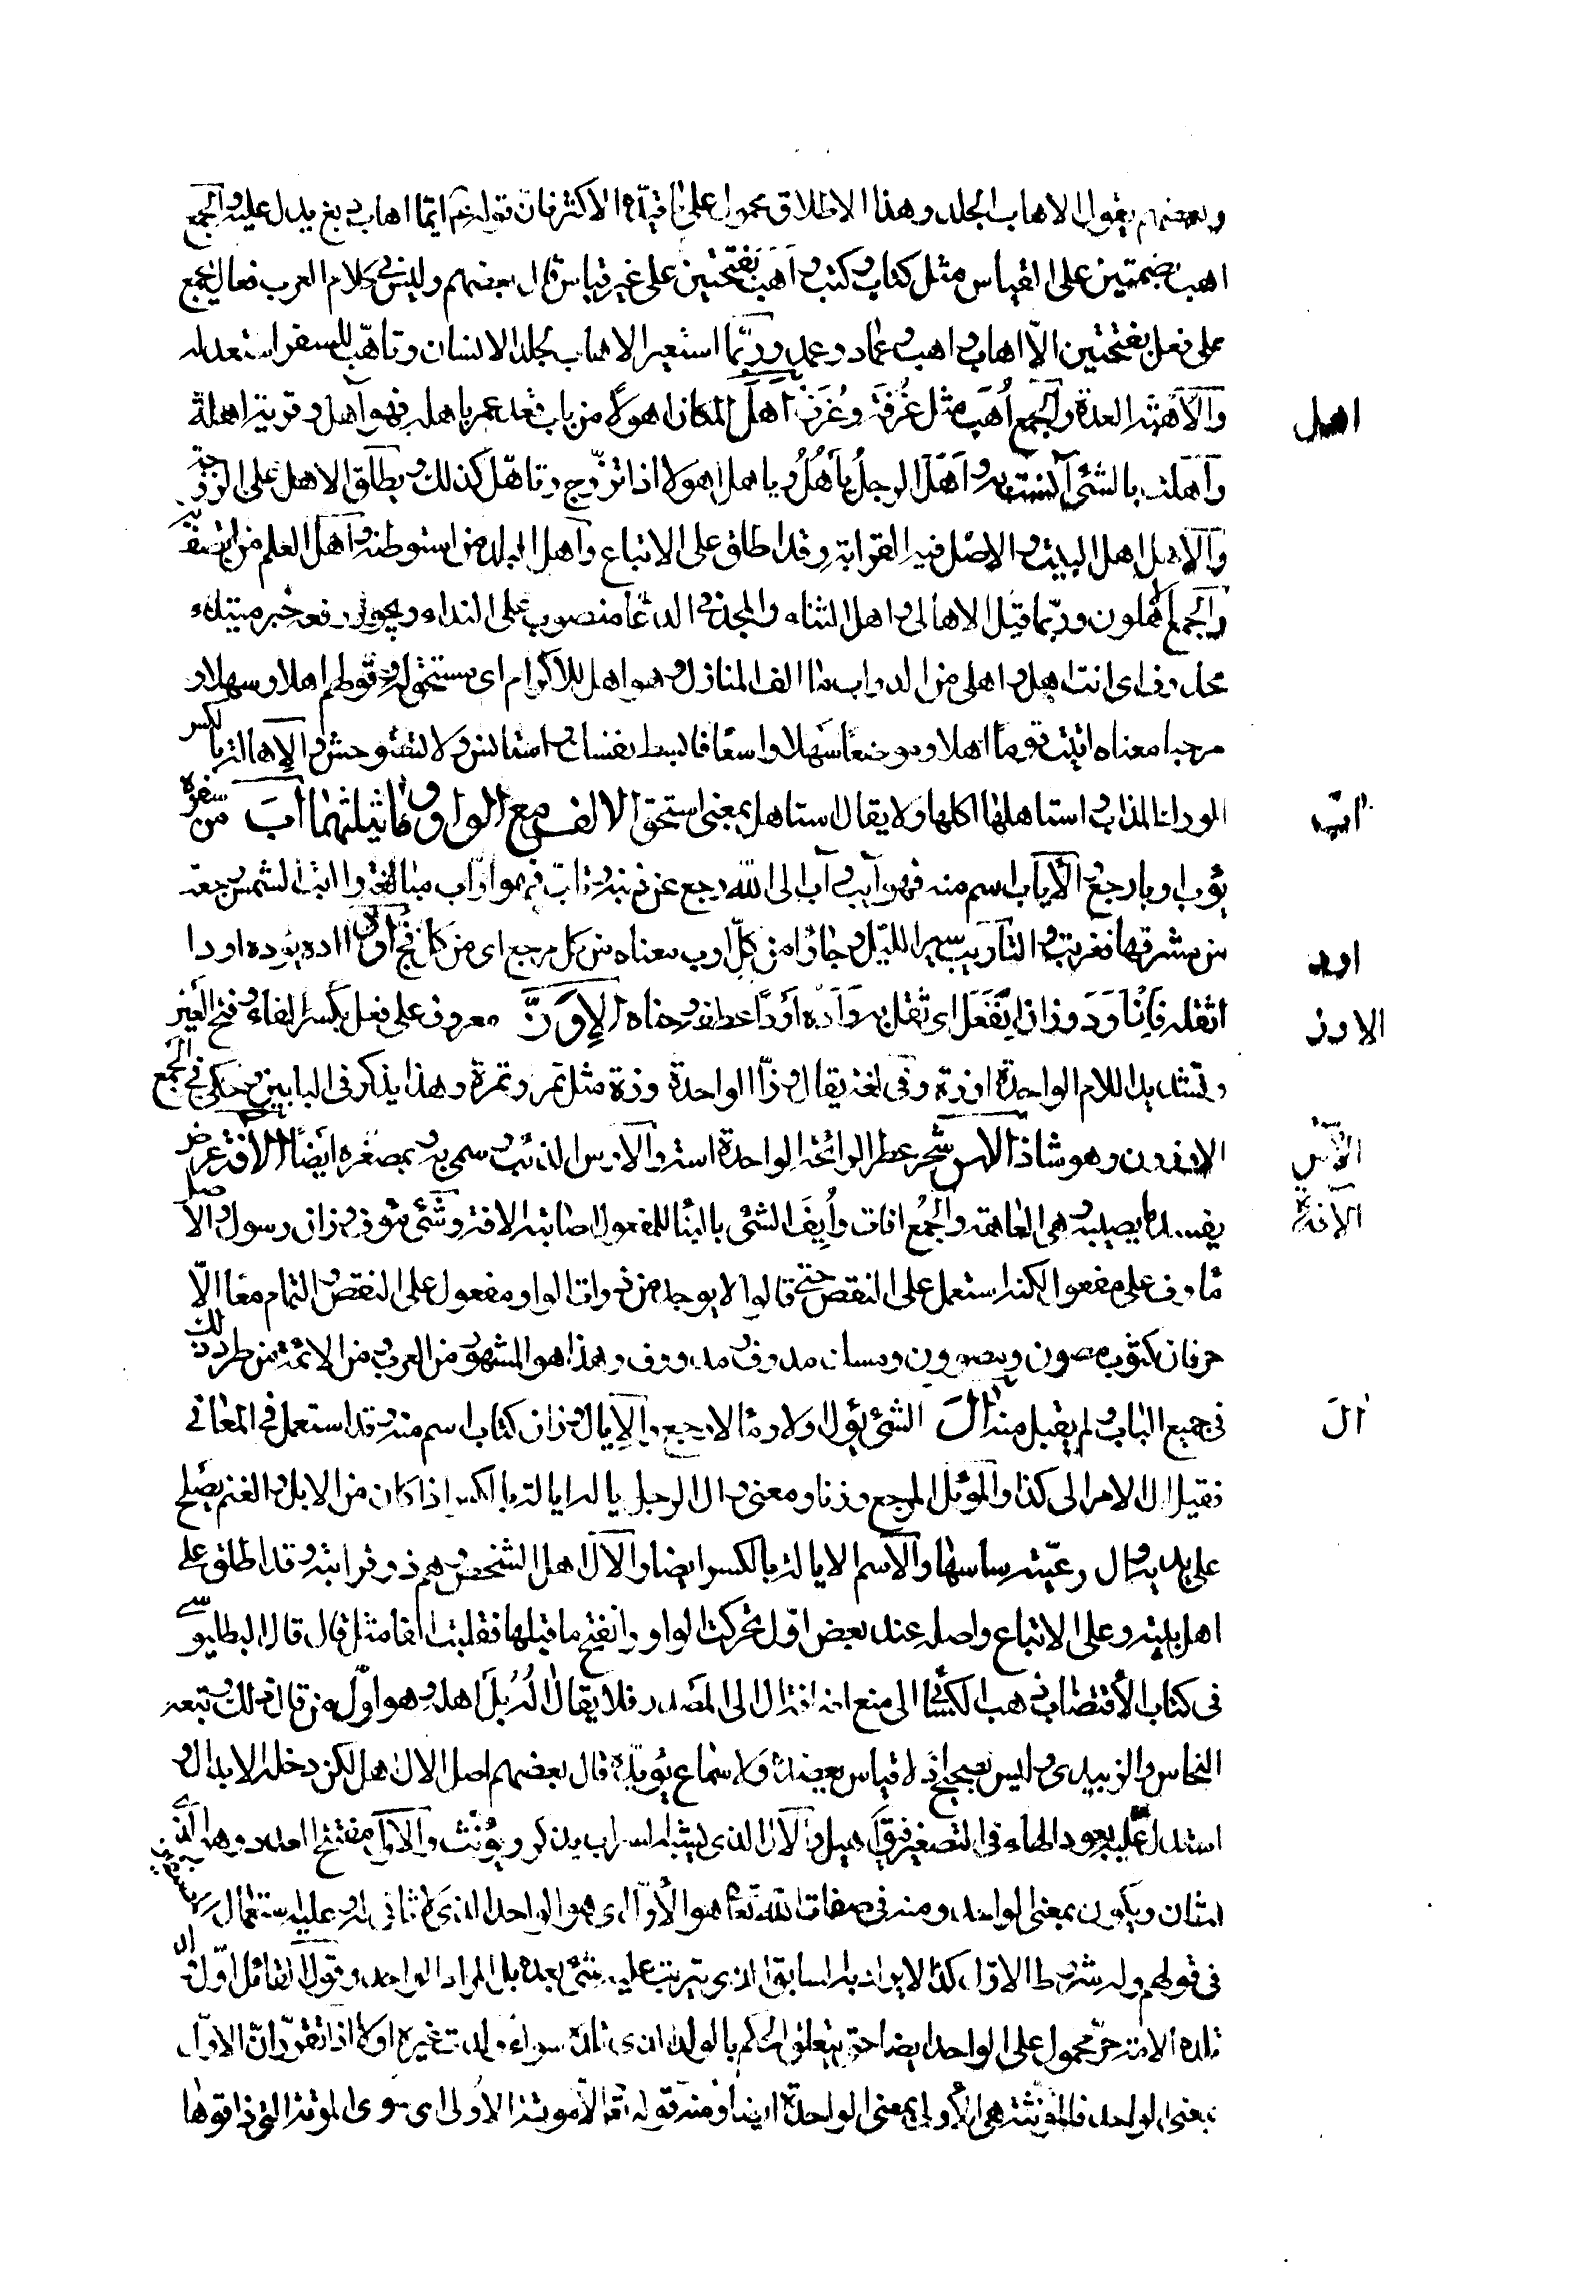 وبعضهم يقول الاهاب الجلد وهذا الاطلاق محمول على ما قيده الاكثر فان قوله عم ايما اهاب دبغ يدل عليه والجمع
اهب بضمتين على القياس مثل كتاب وكتب واهب بفتحتين على غير قياس قال بعضهم وليس في كلام العرب فعال يجمع
على فعل بفتحتين الا اهاب واهب وعماد وعمد وربما استعير الاهاب لجلد الانسان وتاهب للسفر استعد له
والاهبة العدة والجمع اهب مثل غرفة وغرف اهل المكان اهولا من باب قعد عمر باهله فهو آهل وقرية اهلة
اهل
واهلت بالشئ آنست به واهل الرجل يأهل وياهل اهولا اذا تزوج وتاهل كذلك ويطلق الاهل على الزوجة
والاهل اهل البيت والاصل فيه القرابة وقد اطلق على الاتباع واهل البلد من استوطنه واهل العلم من اتصف به
والجمع اهلون وربما قيل الاهالي واهل الثناء والمجد في الدعا منصوب على النداء ويجوز رفعه خبر مبتداء
محذوف اى انت اهل واهلى من الدواب ما الف المنازل وهو اهل للاكرام اى مستحق له وقولهم اهلا وسهلا و
مرحبا معناه اتيت قوما اهلا وموضعا سهلا واسعا فابسط نفسك واستانس ولا تستوحش والاهالة بالكسر
الودك المذاب واستاهلها اكلها ولا يقال استاهل بمعنى استحق الالف مع الواو وما يثلثهما آب من سفره
اب
يؤب اوبا رجع والاياب اسم منه فهو آيب وآب الى الله رجع عن ذنبه وتاب فهو اواب مبالغة وآبت الشمس رجعت
من مشرقها فغربت والتأويب سير الليل وجاؤا من كل اوب معناه من كل مرجع اى من كل فج اود اده يؤده اودا
اود
اثقله فانآد وزان انفعل اى ثقل به وآده أودا عطفه وحناه الاوز معروف على فعل بكسر الفاء وفتح العين
الاوز
وتشديد اللام الواحدة اوزة وفى لغة يقال وز الواحدة وزة مثل تمر وتمرة وهذا يذكر فى البابين وحكى في الجمع
الاوزون وهو شاذ الآس شجر عطر الرائحة الواحدة اسة والاوس الذئب وسمى به وبمصغره ايضا الآفة عرض
الآس
يفسد ما يصيبه وهى العاهة والجمع افات وأيف الشئ بالبنا للمفعول اصابته الافة وشئ مؤوف وزان رسول والاصل
الآفة
مأووف على مفعول لكنه استعمل على النقص حتى قالوا لا يوجد من ذوات الواو مفعول على النقص والتمام معا الا
حرفان ثوب مصون ومصوون ومسك مدوف ومدووف وهذا هو المشهور من العرب ومن الائمة من طرد ذلك
في جميع الباب ولم يقبل منه آل الشئ يؤل اولا ومآلا رجع والايال وزان كتاب اسم منه وقد استعمل في المعانى
ال
فقيل ال الامر الى كذا والموئل المرجع وزنا ومعنى وال الرجل ياله ايالة بالكسر اذا كان من الابل والغنم يصلح
على يديه وال رعيته ساسها والاسم الايالة بالكسر ايضا والآل اهل الشخص وهم ذو قرابته وقد اطلق على
اهل بيته وعلى الاتباع واصله عند بعض اول تحركت الواو وانفتح ما قبلها فقلبت الفا مثل قال قال البطليوسى
فى كتاب الاقتضاب ذهب الكسائى الى منع اضافة ال الى المضمر فلا يقال اله بل اهله وهو اول من قال ذلك وتبعه
النحاس والزبيدى وليس بصحيح اذ لا قياس يعضده ولا سماع يؤيده قال بعضهم اصل الال اهل لكن دخله الابدال و
استدل عليه بعود الهاء فى التصغير فيق اهيل والآل الذى يشبه السراب يذكر ويؤنث والاول مفتتح العدد وهو الذى
له ثان ويكون بمعنى الواحد ومنه فى صفات الله تعا هو الاول اى هو الواحد الذى لا ثانى له وعليه استعمال المصنفين
فى قولهم وله شروط الاول كذا لا يراد به السابق الذى يترتب عليه شئ بعده بل المراد الواحد وقول القائل اول ولد
تلده الامة حر محمول على الواحد ايضا حتى يتعلق الحكم بالولد الذى تلده سواء ولدت غيره اولا اذا تقرر ان الاول
بمعنى الواحد فالمؤنثة هى الاولى بمعنى الواحدة ايضا ومنه قوله تعا الا الموتة الاولى اى سوى الموتة التى ذاقوها